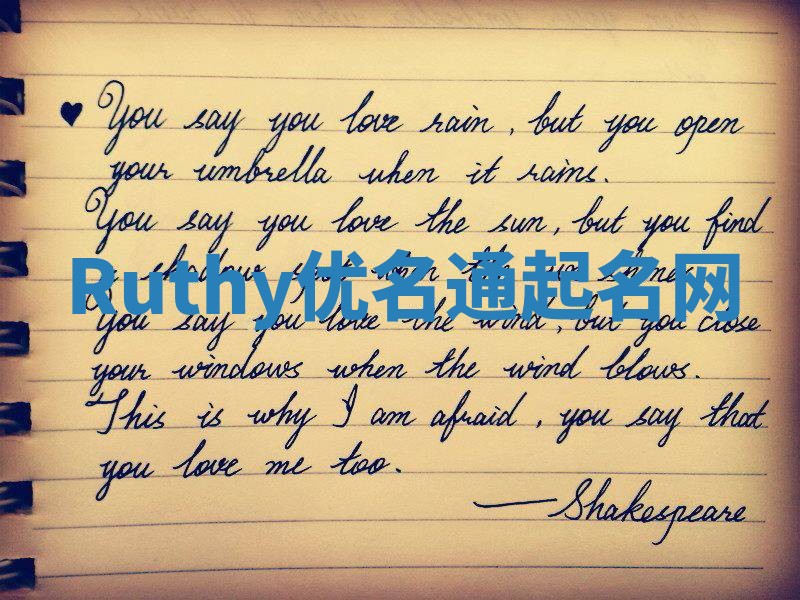 ♥ You say you love rain, but you open
your umbrella when it rains.
You say you love the sun, but you find
a shadow spot when the sun shines.
Ruthy优名通起名网
You say you love the wind, but you close
your windows when the wind blows.
This is why I am afraid, you say that
you love me too.
—Shakespeare